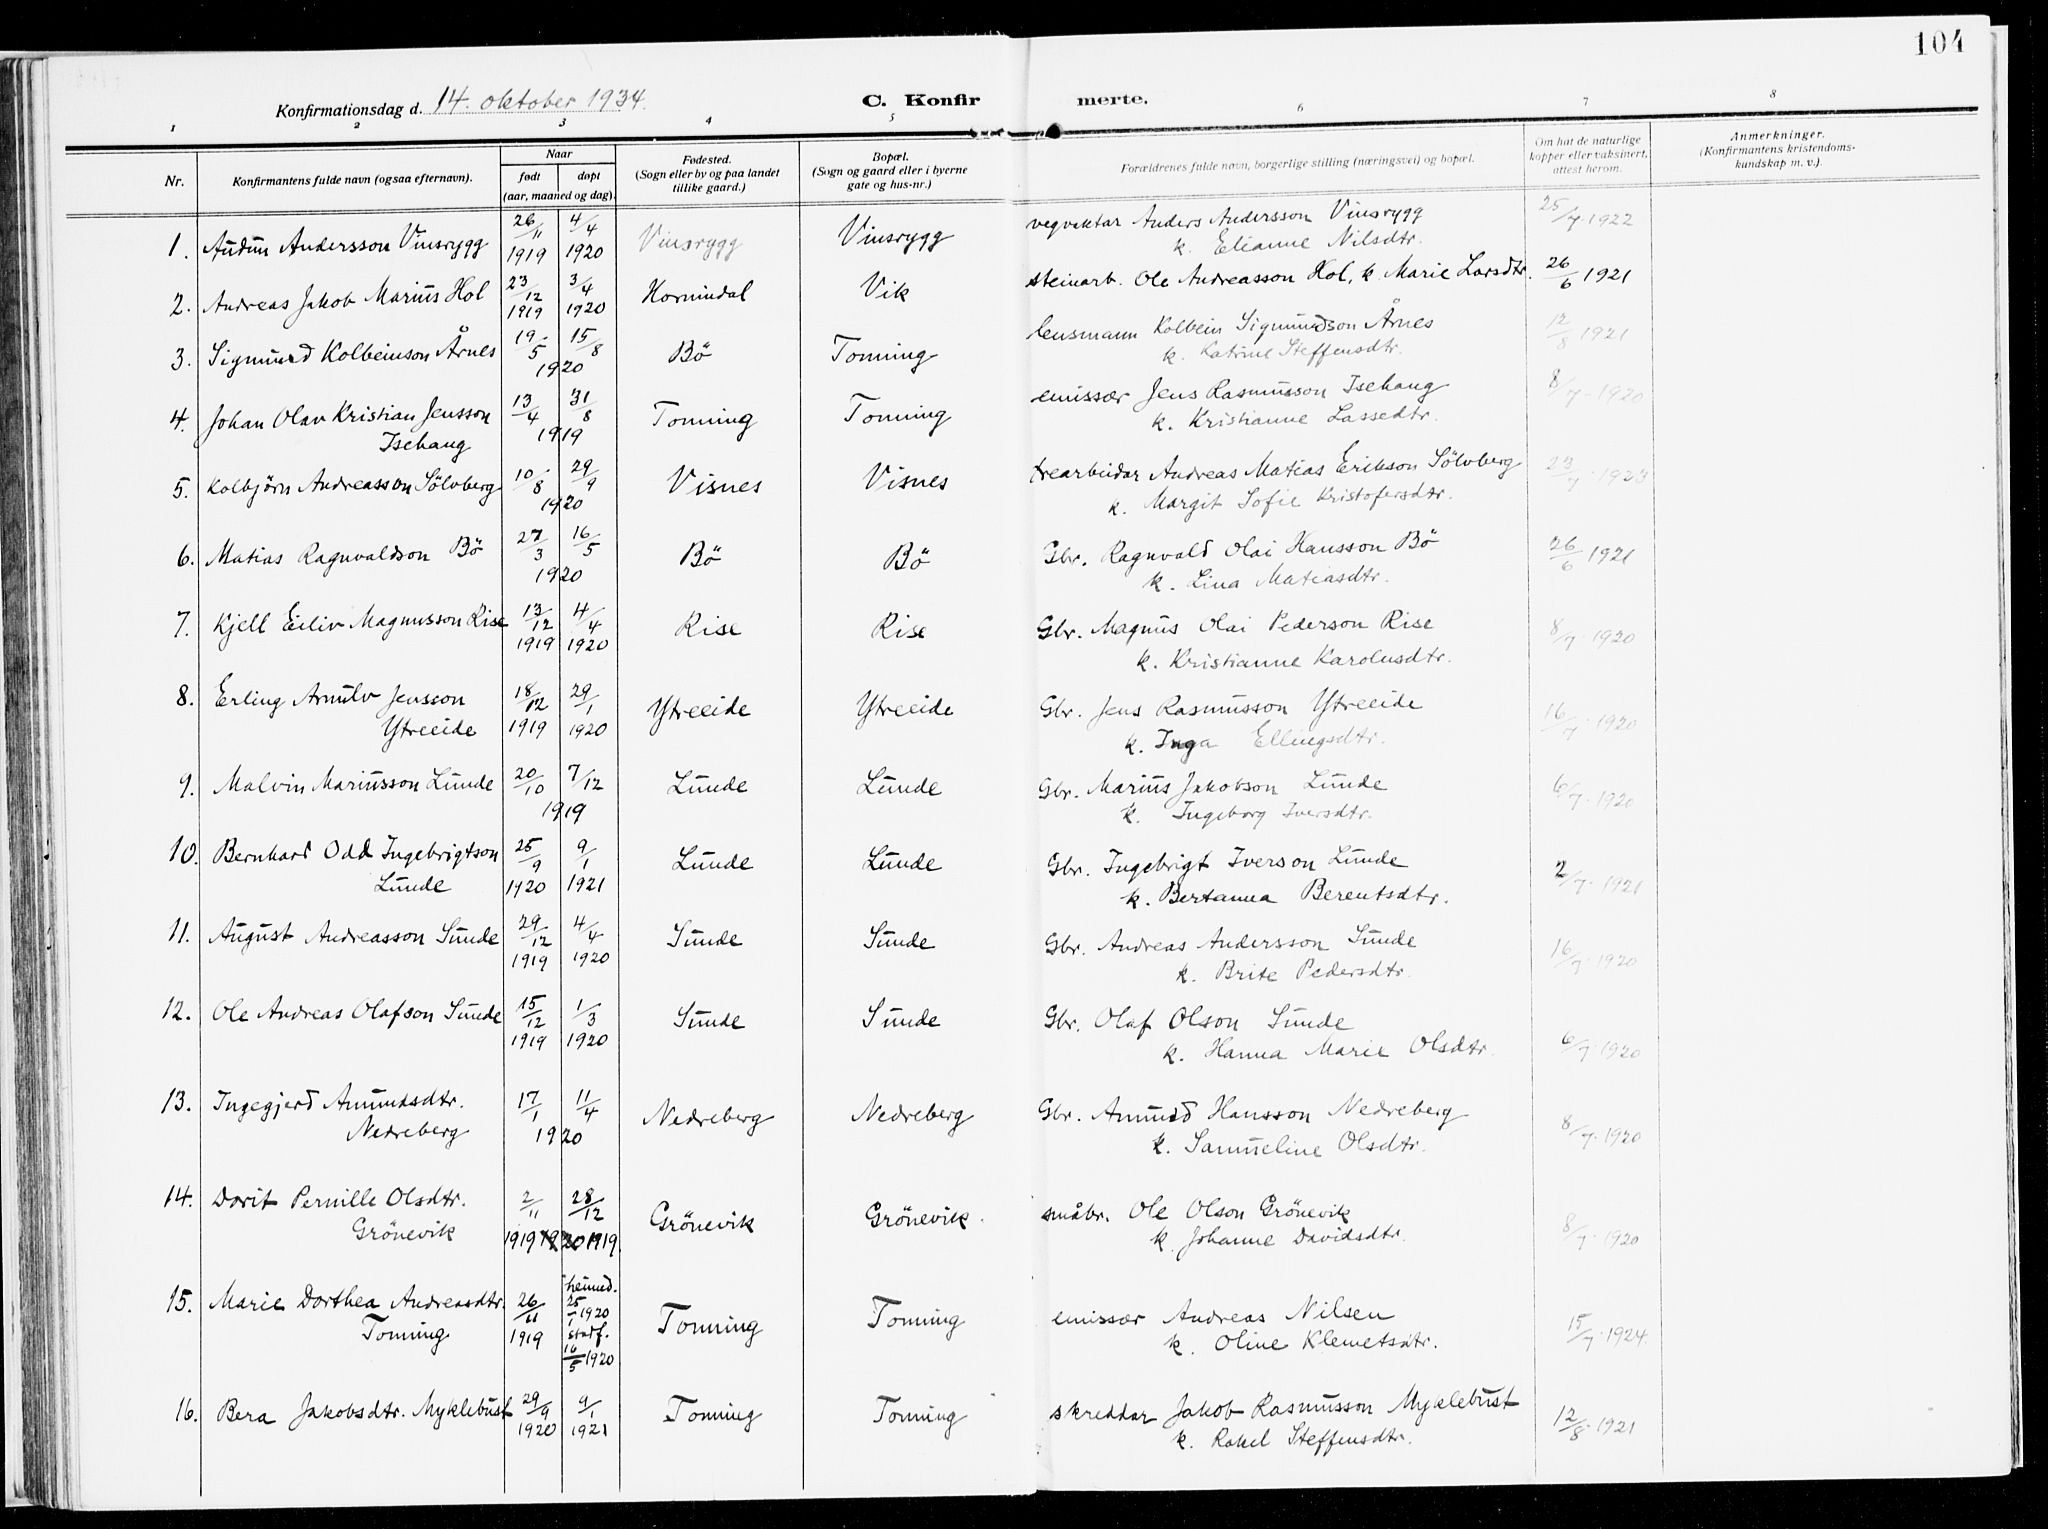 104
Konfirmationsdag d. 14. oktober 1934.
C. Konfir merte.
1 2 3 4 5 6 7 8
Nr.
Konfirmantens fulde navn (ogsaa efternavn).
Naar
født døpt
(aar, maaned og dag).
Fødested.
(Sogn eller by og paa landet
tillike gaard.)
Bopæl.
(Sogn og gaard eller i byerne
gate og hus-nr.)
Forældrenes fulde navn, borgerlige stilling (næringsvei) og bopæl.
Om hat de naturlige
kopper eller vaksinert,
attest herom.
Anmerkninger.
(Konfirmantens kristendoms-
kundskap m. v.).
1. Audun Andersson Vinsrygg 26/11 1919 4/4 1920 Vinsrygg Vinsrygg vegvaktar Anders Andersson Vinsrygg 25/7 1922
k. Elianne Nilsdtr.
2. Andreas Jakob Marius Hol 23/12 1919 3/4 1920 Hornindal Vik steinarb. Ole Andreasson Hol, k. Marie Larsdtr. 26/6 1921
3. Sigmund Kolbeinson Årnes 19/5 15/8 1920 Bö Tonning lensmann Kolbein Sigmundson Årnes 12/8 1921
k. Katrine Steffensdtr.
4. Johan Olav Kristian Jensson 13/4 31/8 1919 Tonning Tonning emissær Jens Rasmusson Isehaug 8/7-1920
Isehaug k. Kristianne Lassedtr.
5. Kolbjörn Andreasson Sölvberg 10/8 29/9 1920 Visnes Visnes trearbeidar Andreas Matias Erikson Sölvberg 23/7 1923
k. Margit Sofie Kristofersdtr.
6. Matias Ragnvaldson Bö 27/3 16/5 1920 Bö Bö Gbr. Ragnvald Olai Hansson Bö 26/6 1921
k. Lina Matiasdtr.
7. Kjell Eiliv Magnusson Rise 13/12 1919 4/4 1920 Rise Rise Gbr. Magnus Olai Pederson Rise 8/7-1920
k. Kristianne Karolusdtr.
8. Erling Arnulv Jensson 18/12 1919 29/1 1920 Ytreeide Ytreeide Gbr. Jens Rasmusson Ytreeide 16/7-1920
Ytreeide k. Inga Ellingsdtr.
9. Malvin Mariusson Lunde 20/10 7/12 1919 Lunde Lunde Gbr. Marius Jakobson Lunde 6/7-1920
k. Ingeborg Iversdtr.
10. Bernhard Odd Ingebrigtson 25/9 1920 9/1 1921 Lunde Lunde Gbr. Ingebrigt Iverson Lunde 2/7-1921
Lunde k. Bertanna Berentsdtr.
11. August Andreasson Sunde 29/12 1919 4/4 1920 Sunde Sunde Gbr. Andreas Andersson Sunde 16/7-1920
k. Brite Pedersdtr.
12. Ole Andreas Olafson Sunde 15/12 1919 1/3 1920 Sunde Sunde Gbr. Olaf Olson Sunde 6/7-1920
k. Hanna Marie Olsdtr.
13. Ingegjerd Amundsdtr. 17/1 11/4 1920 Nedreberg Nedreberg Gbr. Amund Hansson Nedreberg 8/7-1920
Nedreberg k. Samueline Olsdtr.
14. Dorit Pernille Olsdtr. 2/11 1919 28/12 1919. Grönevik Grönevik. småbr. Ole Olson Grönevik 8/7-1920
Grönevik k. Johanne Davidsdtr.
15. Marie Dorthea Andreasdtr. 26/11 1919 heimed. 25/1 1920 stadf. 16/5 1920 Tonning Tonning emissær Andreas Nilsen 15/7-1924
Tonning k. Oline Klemetsdtr.
16. Bera Jakobsdtr. Myklebust 29/9 1920 9/1 1921 Tonning Tonning skreddar Jakob Rasmusson Myklebust 12/8-1921
k. Rakel Steffensdtr.